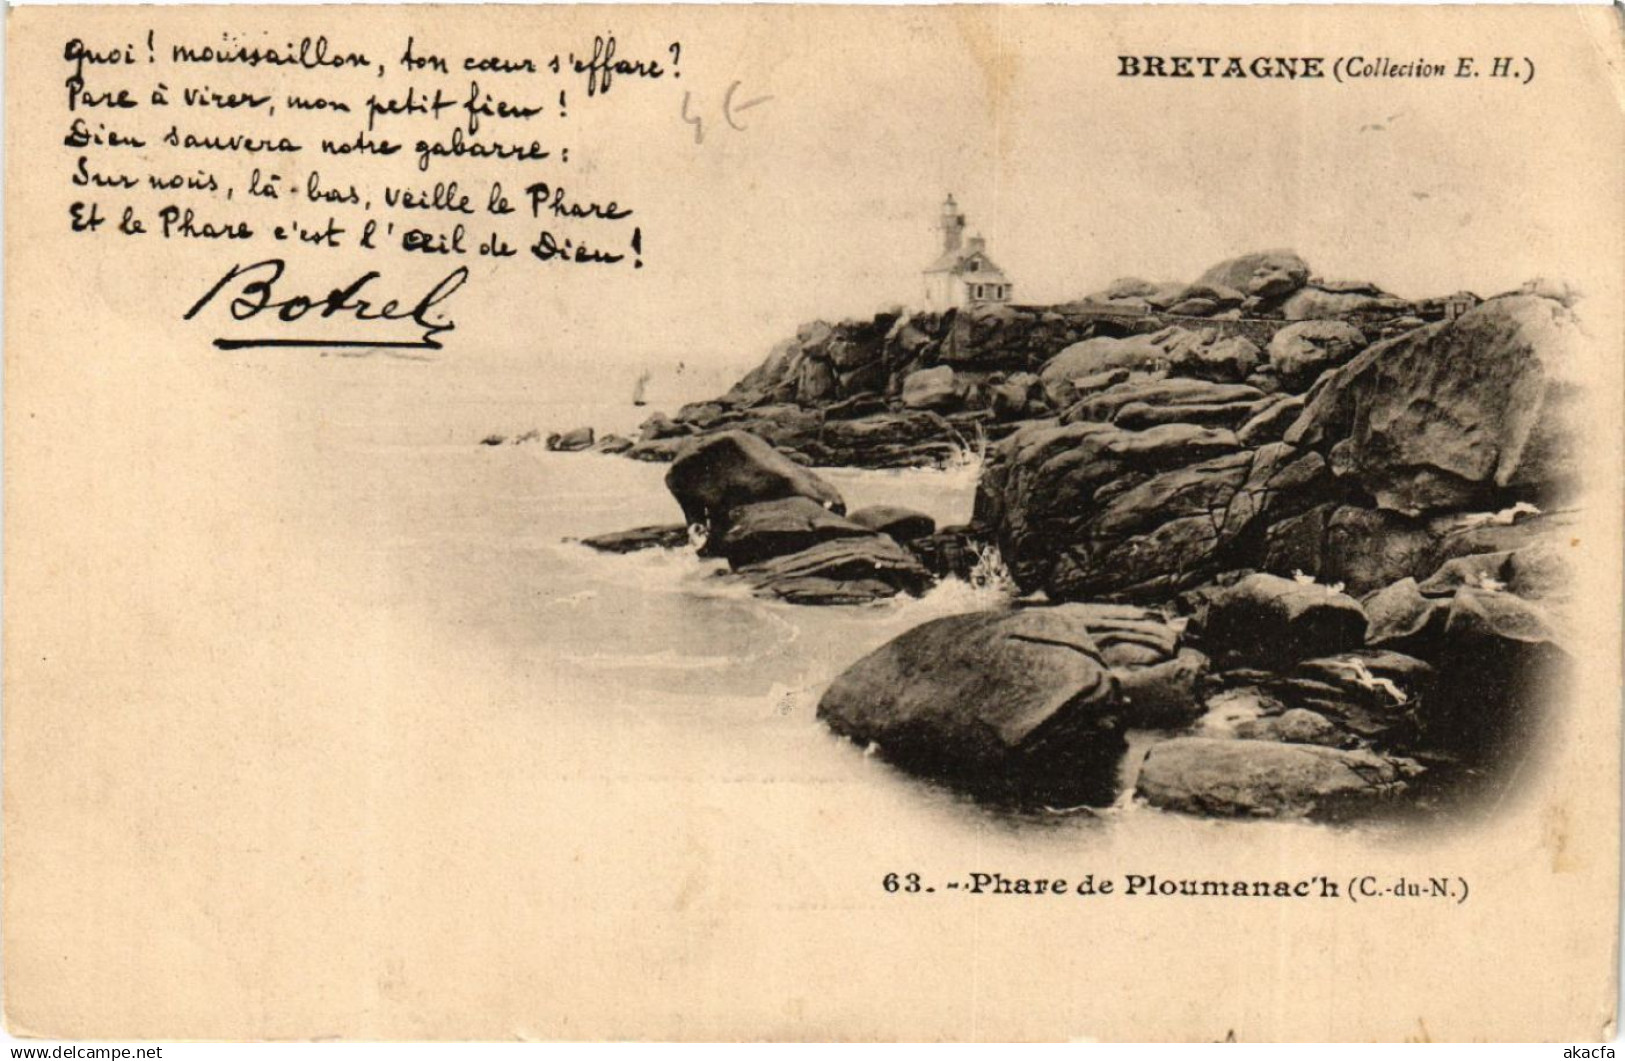 Quoi! moussaillon, ton cœur s'effare?
Pare à virer, mon petit fieu!
Dieu sauvera notre gabarre:
Sur nous, là-bas, veille le Phare
Et le Phare c'est l'Œil de Dieu!
Botrel
4€
BRETAGNE (Collection E. H.)
63. - Phare de Ploumanac'h (C.-du-N.)
www.delcampe.net
akacfa